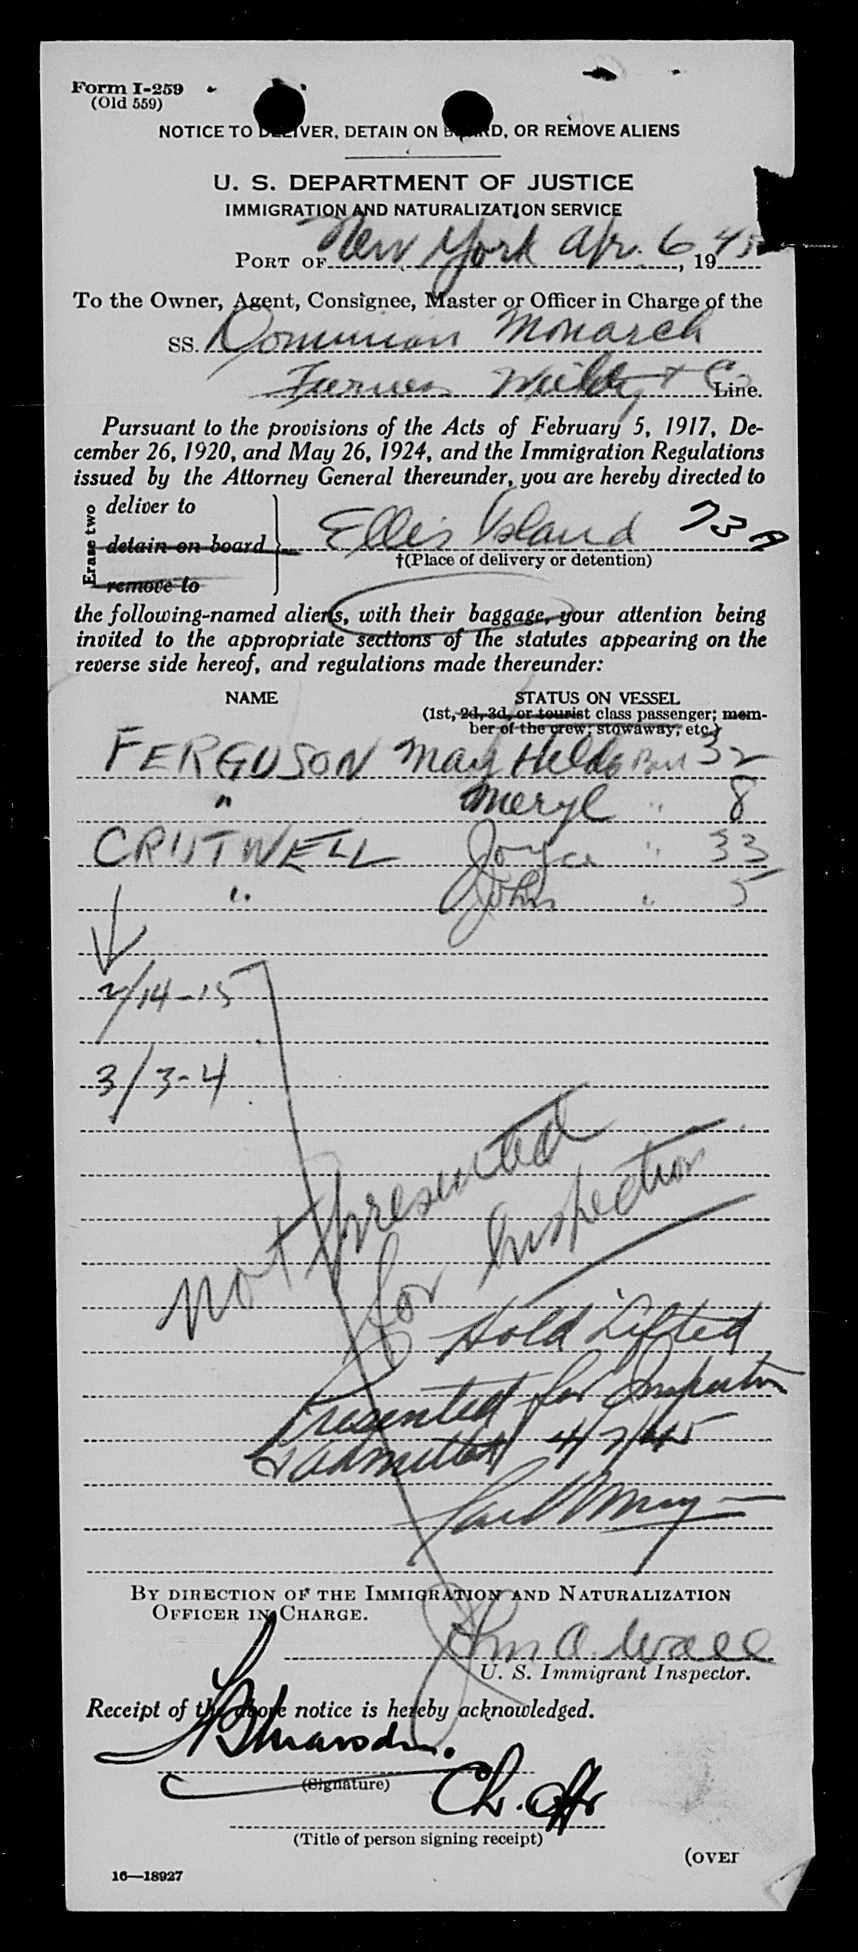 Form I-259
(Old 559)
NOTICE TO DELIVER, DETAIN ON BOARD, OR REMOVE ALIENS
U. S. DEPARTMENT OF JUSTICE
IMMIGRATION AND NATURALIZATION SERVICE
PORT OF New York Apr. 6, 1945
To the Owner, Agent, Consignee, Master or Officer in Charge of the
SS. Dominion Monarch
Furness Withy + Co Line.
Pursuant to the provisions of the Acts of February 5, 1917, De-
cember 26, 1920, and May 26, 1924, and the Immigration Regulations
issued by the Attorney General thereunder, you are hereby directed to
Erase two
deliver to
detain on board
remove to
Ellis Island 73 A
†(Place of delivery or detention)
the following-named aliens, with their baggage, your attention being
invited to the appropriate sections of the statutes appearing on the
reverse side hereof, and regulations made thereunder:
NAME STATUS ON VESSEL
(1st, 2d, 3d, or tourist class passenger; mem-
ber of the crew; stowaway; etc.)
FERGUSON May Hilda 32
" Meryl " 8
CRUTWELL Joyce " 33
" John " 5
2/14-15
3/3-4
not presented
for Inspection
Hold Lifted
Presented for Inspection
& admitted 4/7/45
BY DIRECTION OF THE IMMIGRATION AND NATURALIZATION
OFFICER IN CHARGE.
John A. Wall
U. S. Immigrant Inspector.
Receipt of the above notice is hereby acknowledged.
(Signature)
Ch. Offr
(Title of person signing receipt)
(OVER
16—18927